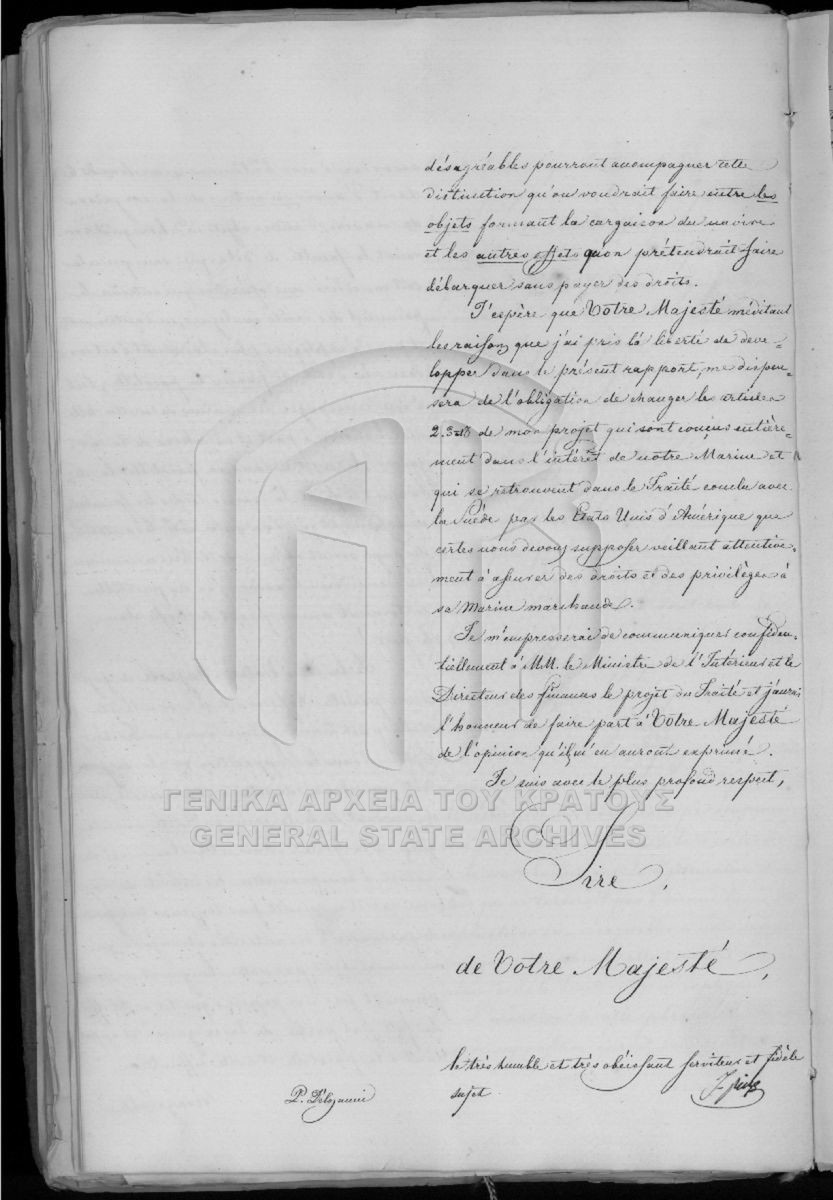 désagréables pourront accompagner cette
distinction qu'on voudrait faire entre les
objets formant la cargaison du navire
et les autres effets qu'on prétendrait faire
débarquer sans payer des droits.
J'espère que Votre Majesté méditant
les raisons que j'ai pris la liberté de déve-
lopper dans le présent rapport, me dispen-
sera de l'obligation de changer les articles
2. 3 de mon projet qui sont conçus entière-
ment dans l'intérêt de notre Marine et
qui se retrouvent dans le Traité conclu avec
la Suède par les Etats Unis d'Amérique que
certes nous devons supposer veillant attentive-
ment à assurer des droits et des privilèges à
sa Marine marchande.
Je m'empresserai de communiquer confiden-
tiellement à M.M. le Ministre de l'Intérieur et le
Directeur des finances le projet du Traité et j'aurai
l'honneur de faire part à Votre Majesté
de l'opinion qu'ils m'en auront exprimé.
Je suis avec le plus profond respect,
ΓΕΝΙΚΑ ΑΡΧΕΙΑ ΤΟΥ ΚΡΑΤΟΥΣ
GENERAL STATE ARCHIVES
Sire,
de Votre Majesté,
le très humble et très obéissant serviteur et fidèle
sujet
P.